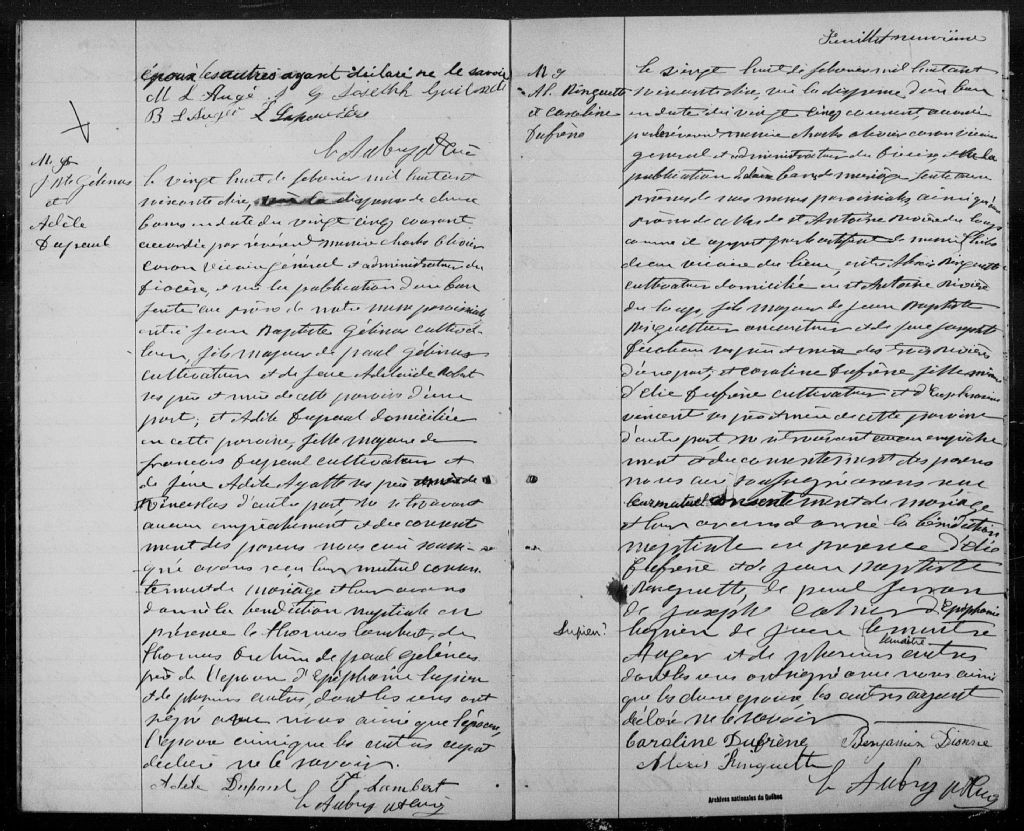 époux les autres ayant déclaré ne le savoir
M L Augé J G Joseph Guilbert
B L Augé L Lapoudère
C Aubry ptre curé
M 98
J Bte Gélinas
et
Adèle
Dupaul
le vingt huit de fevrier mil huit cent
soixante dix, vu la dispense de deux
bans en date du vingt cinq courant
accordée par révérend messire charles Olivier
caron vicaire général et administrateur du
diocèse, et vu la publication d'un ban
faite au prône de notre messe paroissiale
entre jean Baptiste Gélinas cultiva-
teur, fils majeur de paul Gélinas
cultivateur et de feue Adelaide
ses père et mère de cette paroisse d'une
part; et Adèle Dupaul domiciliée
en cette paroisse, fille majeure de
francois Dupaul cultivateur et
de feue Adèle Ayotte ses père et mère de
d'autre part, ne se trouvant
aucun empêchement et du consente-
ment des parens nous curé soussi-
gné avons reçu leur mutuel consen-
tement de mariage et leur avons
donné la benediction nuptiale en
présence de thomas lambert, de
thomas de paul gélinas
père de l'époux d'Epéphanie lupien
et de plusieurs autres, dont les uns ont
signé avec nous ainsi que l'époux,
l'épouse ainsi que les autres ayant
déclaré ne le savoir.
Adèle Dupaul T Lambert
C Aubry ptre curé
Feuillet neuvième
M 9
Al. Ringuette
et Caroline
Dufrene
le vingt huit de fevrier mil huit cent
soixante dix, vu la dispense d'un ban
en date du vingt cinq courant, accordée
par révérend messire charles olivier caron vicaire
général et administrateur du diocèse et vu la
publication de deux bans de mariage faite aux
prônes de nos messes paroissiales ainsi qu'aux
prônes de celles de st Antoine rivière du loup
comme il appert par le certificat de messire
vicaire du lieu, entre Alexis Ringuette
cultivateur domicilié en st Antoine Rivière
du loup, fils majeur de Jean Baptiste
Ringuette et de feue
ses père et mère des trois rivières
d'une part; et Caroline Dufrène fille mineure
d'élie Dufrène cultivateur et d'Euphrosine
vincent ses père et mère de cette paroisse
d'autre part, ne se trouvant aucun empêche-
ment et du consentement des parens
nous curé soussigné avons reçu
leur mutuel consentement de mariage
et leur avons donné la bénédiction
nuptiale en présence d'élie
Dufrène et de jean Baptiste
Ringuette, de paul
de joseph d'Epéphanie
Lupien? lupien de jean lemaitre
lemaitre
Auger et de plusieurs autres
dont les uns ont signé avec nous ainsi
que les deux époux les autres ayant
déclaré ne le savoir
Caroline Dufrène Benjamin Dionne
Alexis Ringuette
C Aubry ptre curé
Archives nationales du Québec